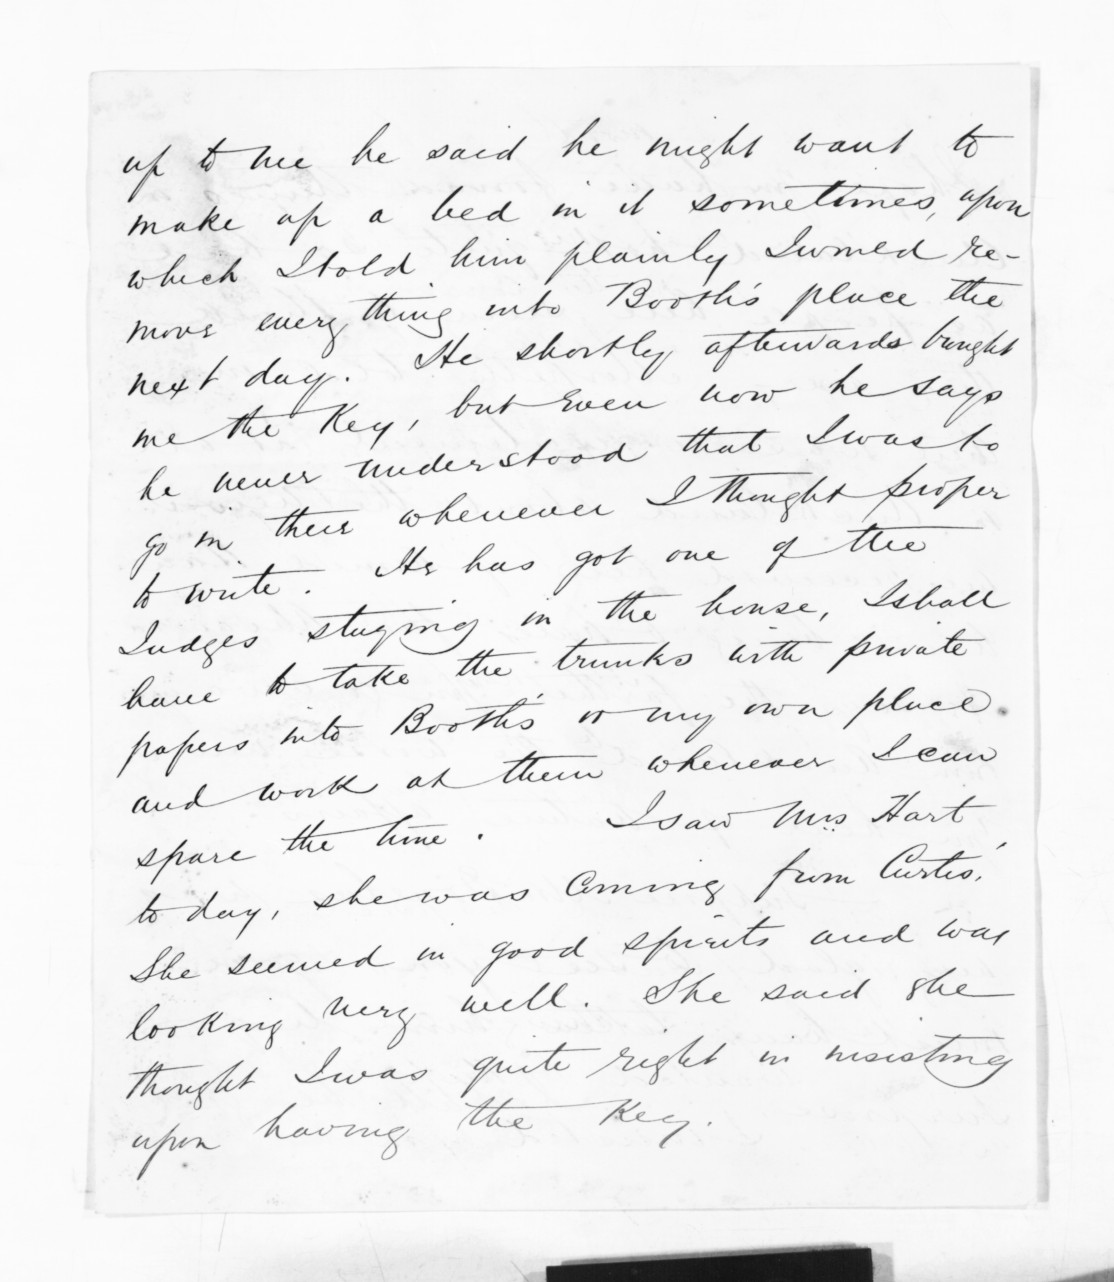 up to me he said he might want to
make up a bed in it sometimes, upon
which I told him plainly I wo​uld re-
move every thing into Booth's place the
next day. He shortly afterwards brought
me the Key, but even now he says
he never understood that I was to
go in there whenever I thought proper
to write. He has got one of the
Judges staying in the house, I shall
have to take the trunks with private
papers into Booth's or my own place
and work at them whenever I can
spare the time. I saw Mrs Hart
to day, she was coming from Curtis'.
She seemed in good spirits and was
looking very well. She said she
thought I was quite right in insisting
upon having the Key.